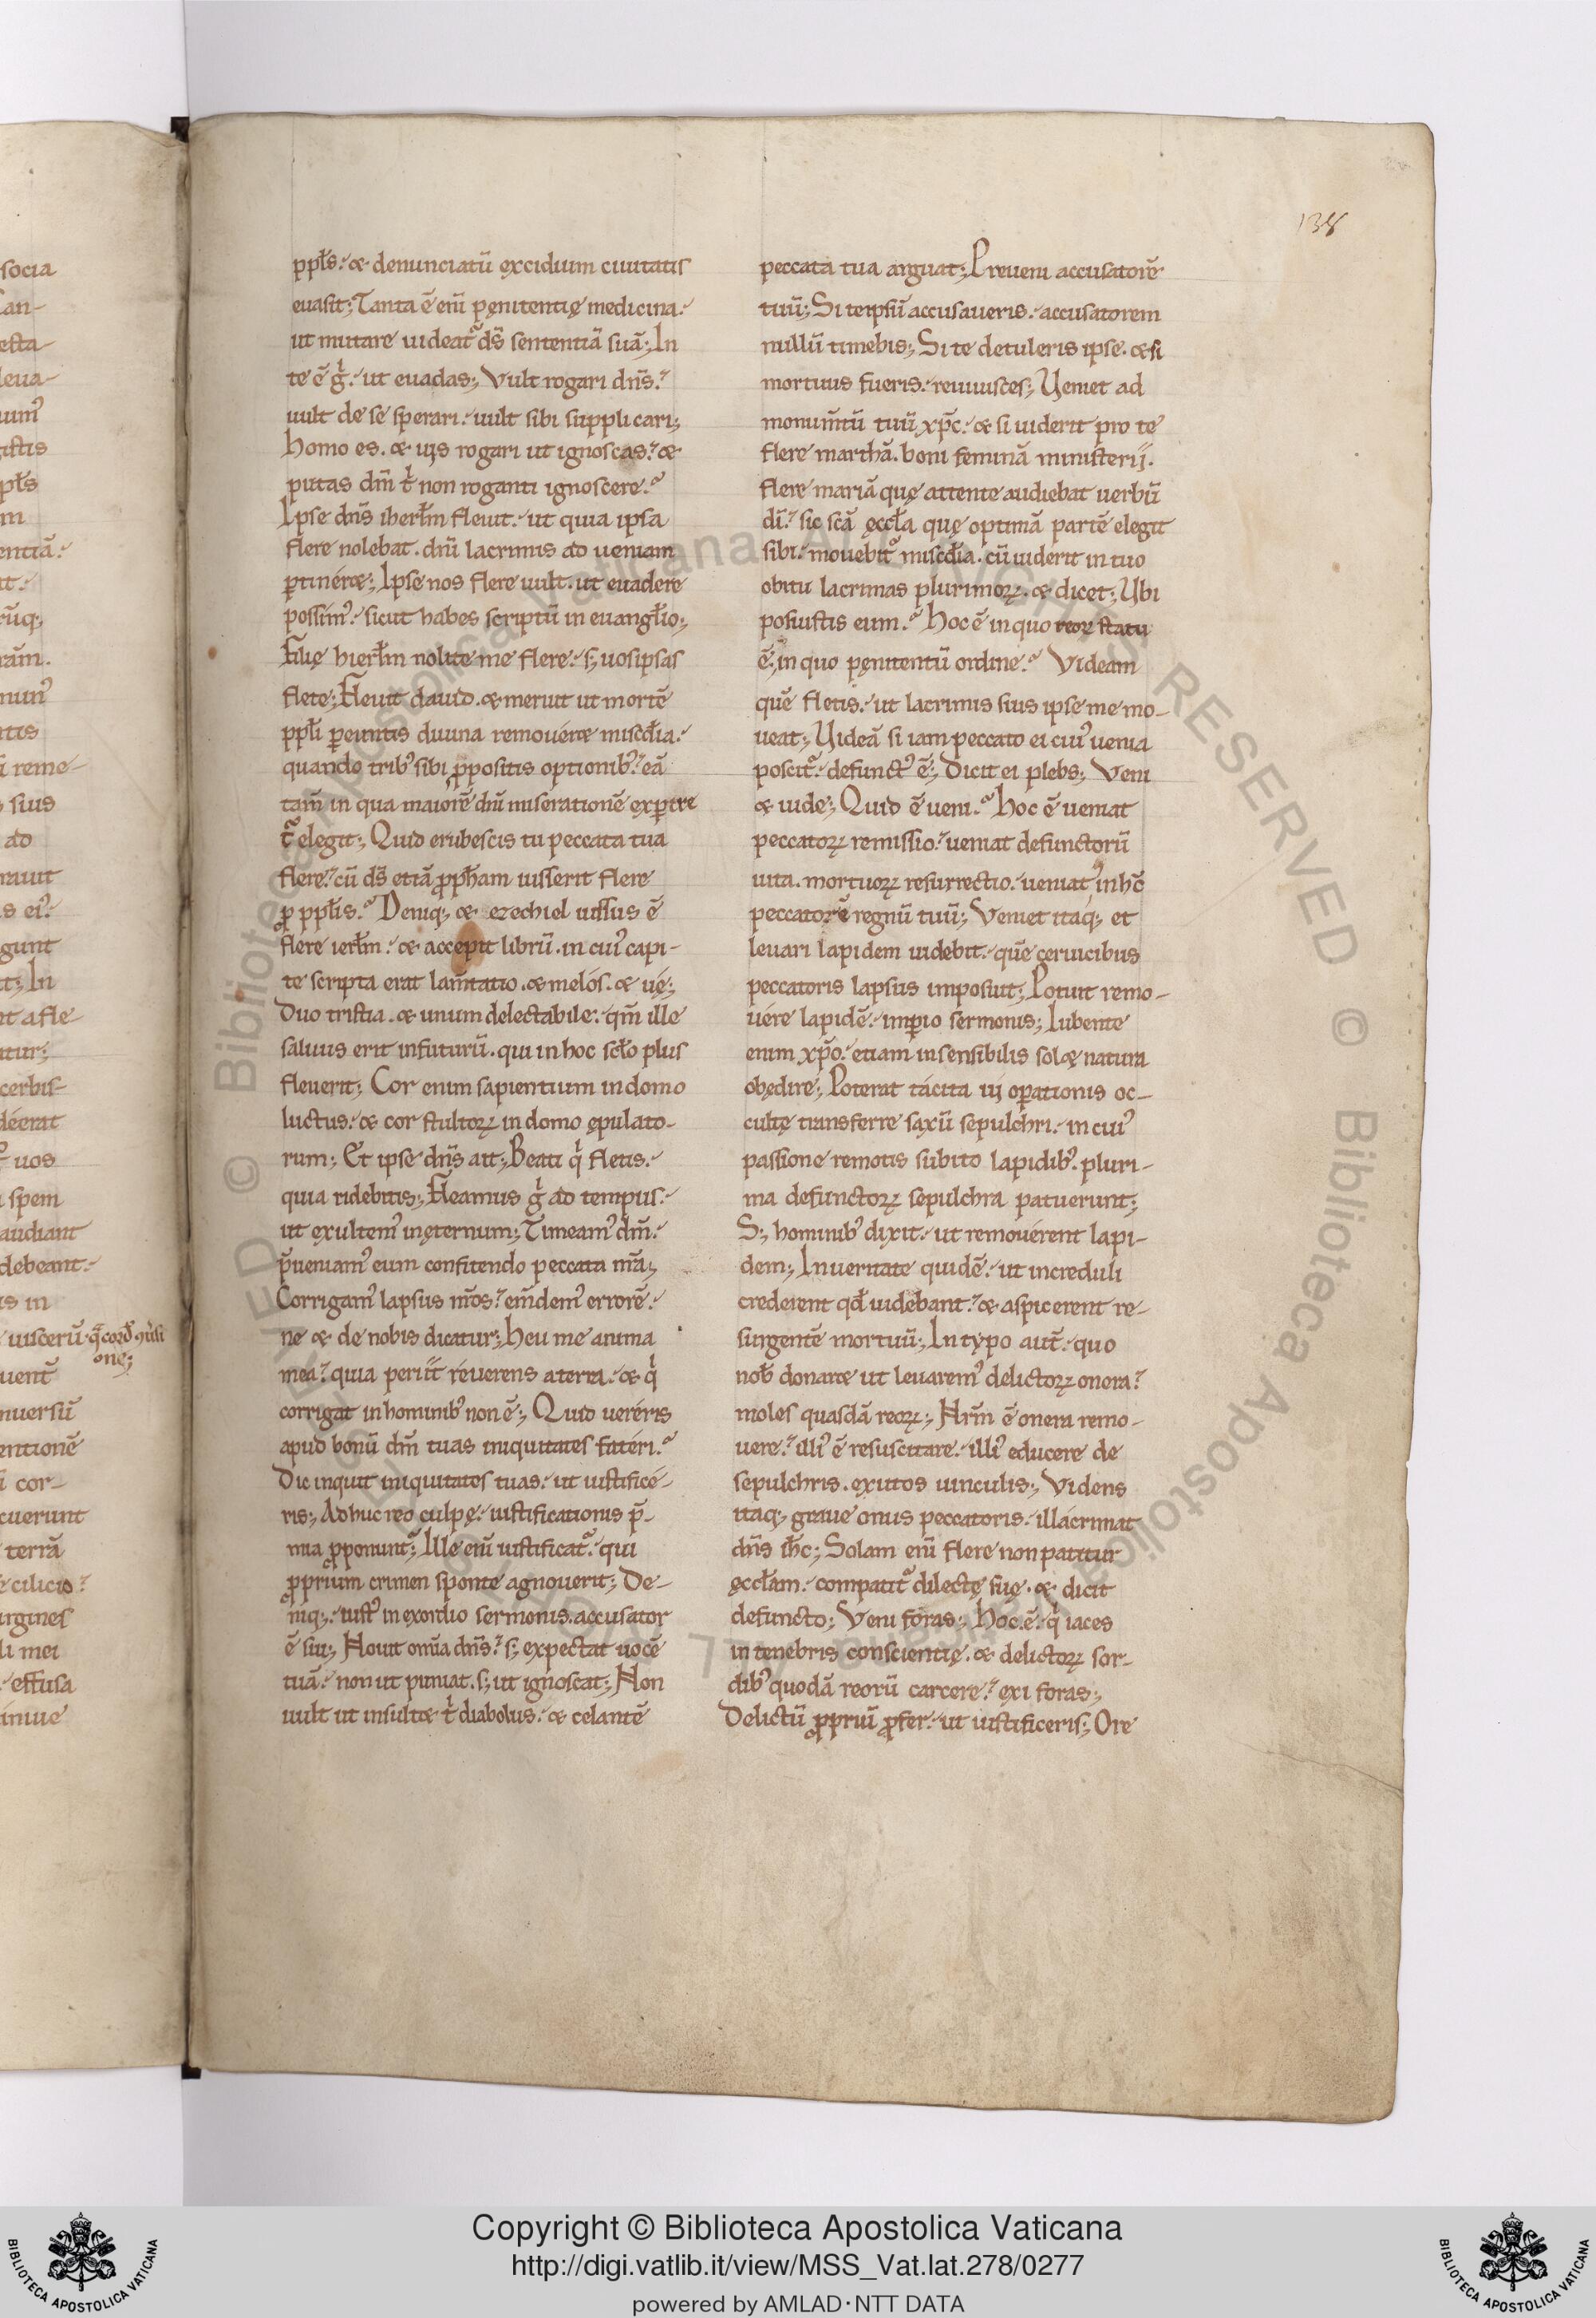 socia
an-
esta-
leua-
istis
ppl̄s
m
entiā.
reme-
sius
ad
rauit
s ei᾽.
gunt
In
at a fle-
atur;
cerbis-
deerat
uos
spem
audiant
debeant.
is in
uisceru᷎
one;
uent̄
nuersū
entionē
cor-
cuerunt
terrā
cilicio
irgines
li mei
effusa
138
ppl̄s. & denunciatū excidium ciuitatis
euasit; Tanta ē eni᷎ pęnitentię medicina.
ut mutare uideat᷑ ds̄ sententiā suā; In
te ē gͥ. ut euadas; Vult rogari dn̄s.
uult de se sperari. uult sibi supplicari;
homo es. & uis rogari ut ignoscas. &
putas dm̄ tͥ non roganti ignoscere.
Ipse dn̄s iherl̄m fleuit. ut quia ipsa
flere nolebat. dn̄i lacrimis ad ueniam
ꝑtinér&; Ipse nos flere uult. ut euadere
possim᾽. sicut habes scriptū in euangl̄io;
Filię hierl̄m nolite me flere. s; uos ipsas
flete; Fleuit dauid. & meruit ut mortē
ppl̄i ꝑeuntis diuina remouér& miscd̄ia.
quando trib᾽ sibi ꝓpositis optionib᾽. eā
tam̄ in qua maiorē dn̄i miserationē exꝑire
t᷑ elegit; Quid erubescis tu peccata tua
flere. cū ds̄ etiā ꝓph̄am iusserit flere
ꝓ ppl̄is. Deniq; & ezechiel iussus ē
flere ierl̄m. & accepit librū. in cui᾽ capi-
te scripta erat lam̄tatio. & melós. & uę́;
Duo tristia. & unum delectabile. qm̄ ille
saluus erit infuturū. qui in hoc scl̄o plus
fleuerit; Cor enim sapientium in domo
luctus. & cor stultoꝝ in domo ępulato-
rum; Et ipse dn̄s ait; Beati qͥ fletis.
quia ridebitis; Fleamus gͥ ad tempus.
ut exultem᾽ inęternum; Timeam᾽ dm̄.
p̄ueniam᾽ eum confitendo peccata nr̄a;
Corrigam᾽ lapsus nr̄os. em̄dem᾽ errorē.
ne & de nobis dicatur; heu me anima
mea. quia periit réuerens a terra. & qͥ
corrigat in hominib᾽ non ē; Quid ueréris
apud bonū dm̄ tuas iniquitates fatéri.
Dic inquit iniquitates tuas. ut iustificé-
ris; Adhuc reo culpę. iustificationis p̄-
mia ꝓponunt᷑; Ille eni᷎ iustificat᷑. qui
ꝓprium crimen sponte agnouerit; De-
niq;. iust᾽ in exordio sermonis. accusator
ē sui; Nouit om̄ia dn̄s. s; expectat uocē
tuā. non ut puniat. s; ut ignoscat; Non
uult ut insult& tͥ diabolus. & celantē
peccata tua arguat; Preueni accusatorē
tuū; Si teipsū accusaueris. accusatorem
nullū timebis; Si te detuleris ipse. & si
mortuus fueris. reuiuisces; Ueniet ad
monum̄tū tuū xp̄c. & si uiderit pro te
flere marthā. boni feminā ministerij.
flere mariā quę attente audiebat uerbū
di᷎. sic scā ęccl̄a quę optimā partē elegit
sibi. mouebit᷑ miscd̄ia. cū uiderit in tuo
obitu lacrimas plurimoꝝ. & dicet; Ubi
posuistis eum. Hoc ē in quo reoꝝ statu
ē; in quo pęnitentū ordine. Videam
quē fletis. ut lacrimis suis ipse me mo-
ueat; Uideā si iam peccato ei cui᾽ uenia
poscit᷑. defunct᾽ ē; Dicit ei plebs; Veni
& uide; Quid ē ueni. Hoc ē ueniat
peccatoꝝ remissio. ueniat defunctorū
uita. mortuoꝝ resurrectio. ueniat in hc̄
peccatorē regnū tuū; Veniet itaq; et
leuari lapidem uidebit. quē ceruicibus
peccatoris lapsus imposuit; Potuit remo-
uére lapidē. imꝑio sermonis; Iubente
enim xp̄o. etiam insensibilis sol& natura
obędiré; Poterat tácita ui oꝑationis oc-
cultę transferre saxū sepulchri. in cui᾽
passione remotis subito lapidib᾽. pluri-
ma defunctoꝝ sepulchra patuerunt;
S; hominib᾽ dixit. ut remouérent lapi-
dem; In ueritate quidē. ut increduli
crederent qd̄ uidebant. & aspicerent re-
surgentē mortuū; In typo aut̄. quo
nob̄ donar& ut leuarem᾽ delictoꝝ onera.
moles quasdā reoꝝ; Nrm̄ ē onera remo-
uere. illi᾽ ē resuscitare. illi᾽ educere de
sepulchris. exutos uinculis; Videns
itaq; graue onus peccatoris. illácrimat
dn̄s ih̄c; Solam eni᷎ flere non patitur
ęccl̄am. compatit᷑ dilectę suę. & dicit
defuncto; Veni foras; Hoc. ē. qͥ iaces
in tenebris conscientię. & delictoꝝ sor-
dib᾽ quodā reorū carcere. exi foras;
Delictū ꝓpriū ꝓfer. ut iustificeris; Ore
Copyright © Biblioteca Apostolica Vaticana
http://digi.vatlib.it/view/MSS_Vat.lat.278/0277
powered by AMLAD·NTT DATA
BIBLIOTECA APOSTOLICA VATICANA
BIBLIOTECA APOSTOLICA VATICANA